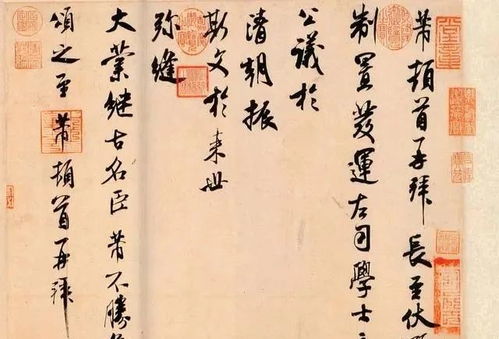 芾頓首再拜長至伏
制置發運左司學士
公議於
清朝振
斯文於來世
弥縫
大業継古名臣芾不勝
頌之至芾頓首再拜